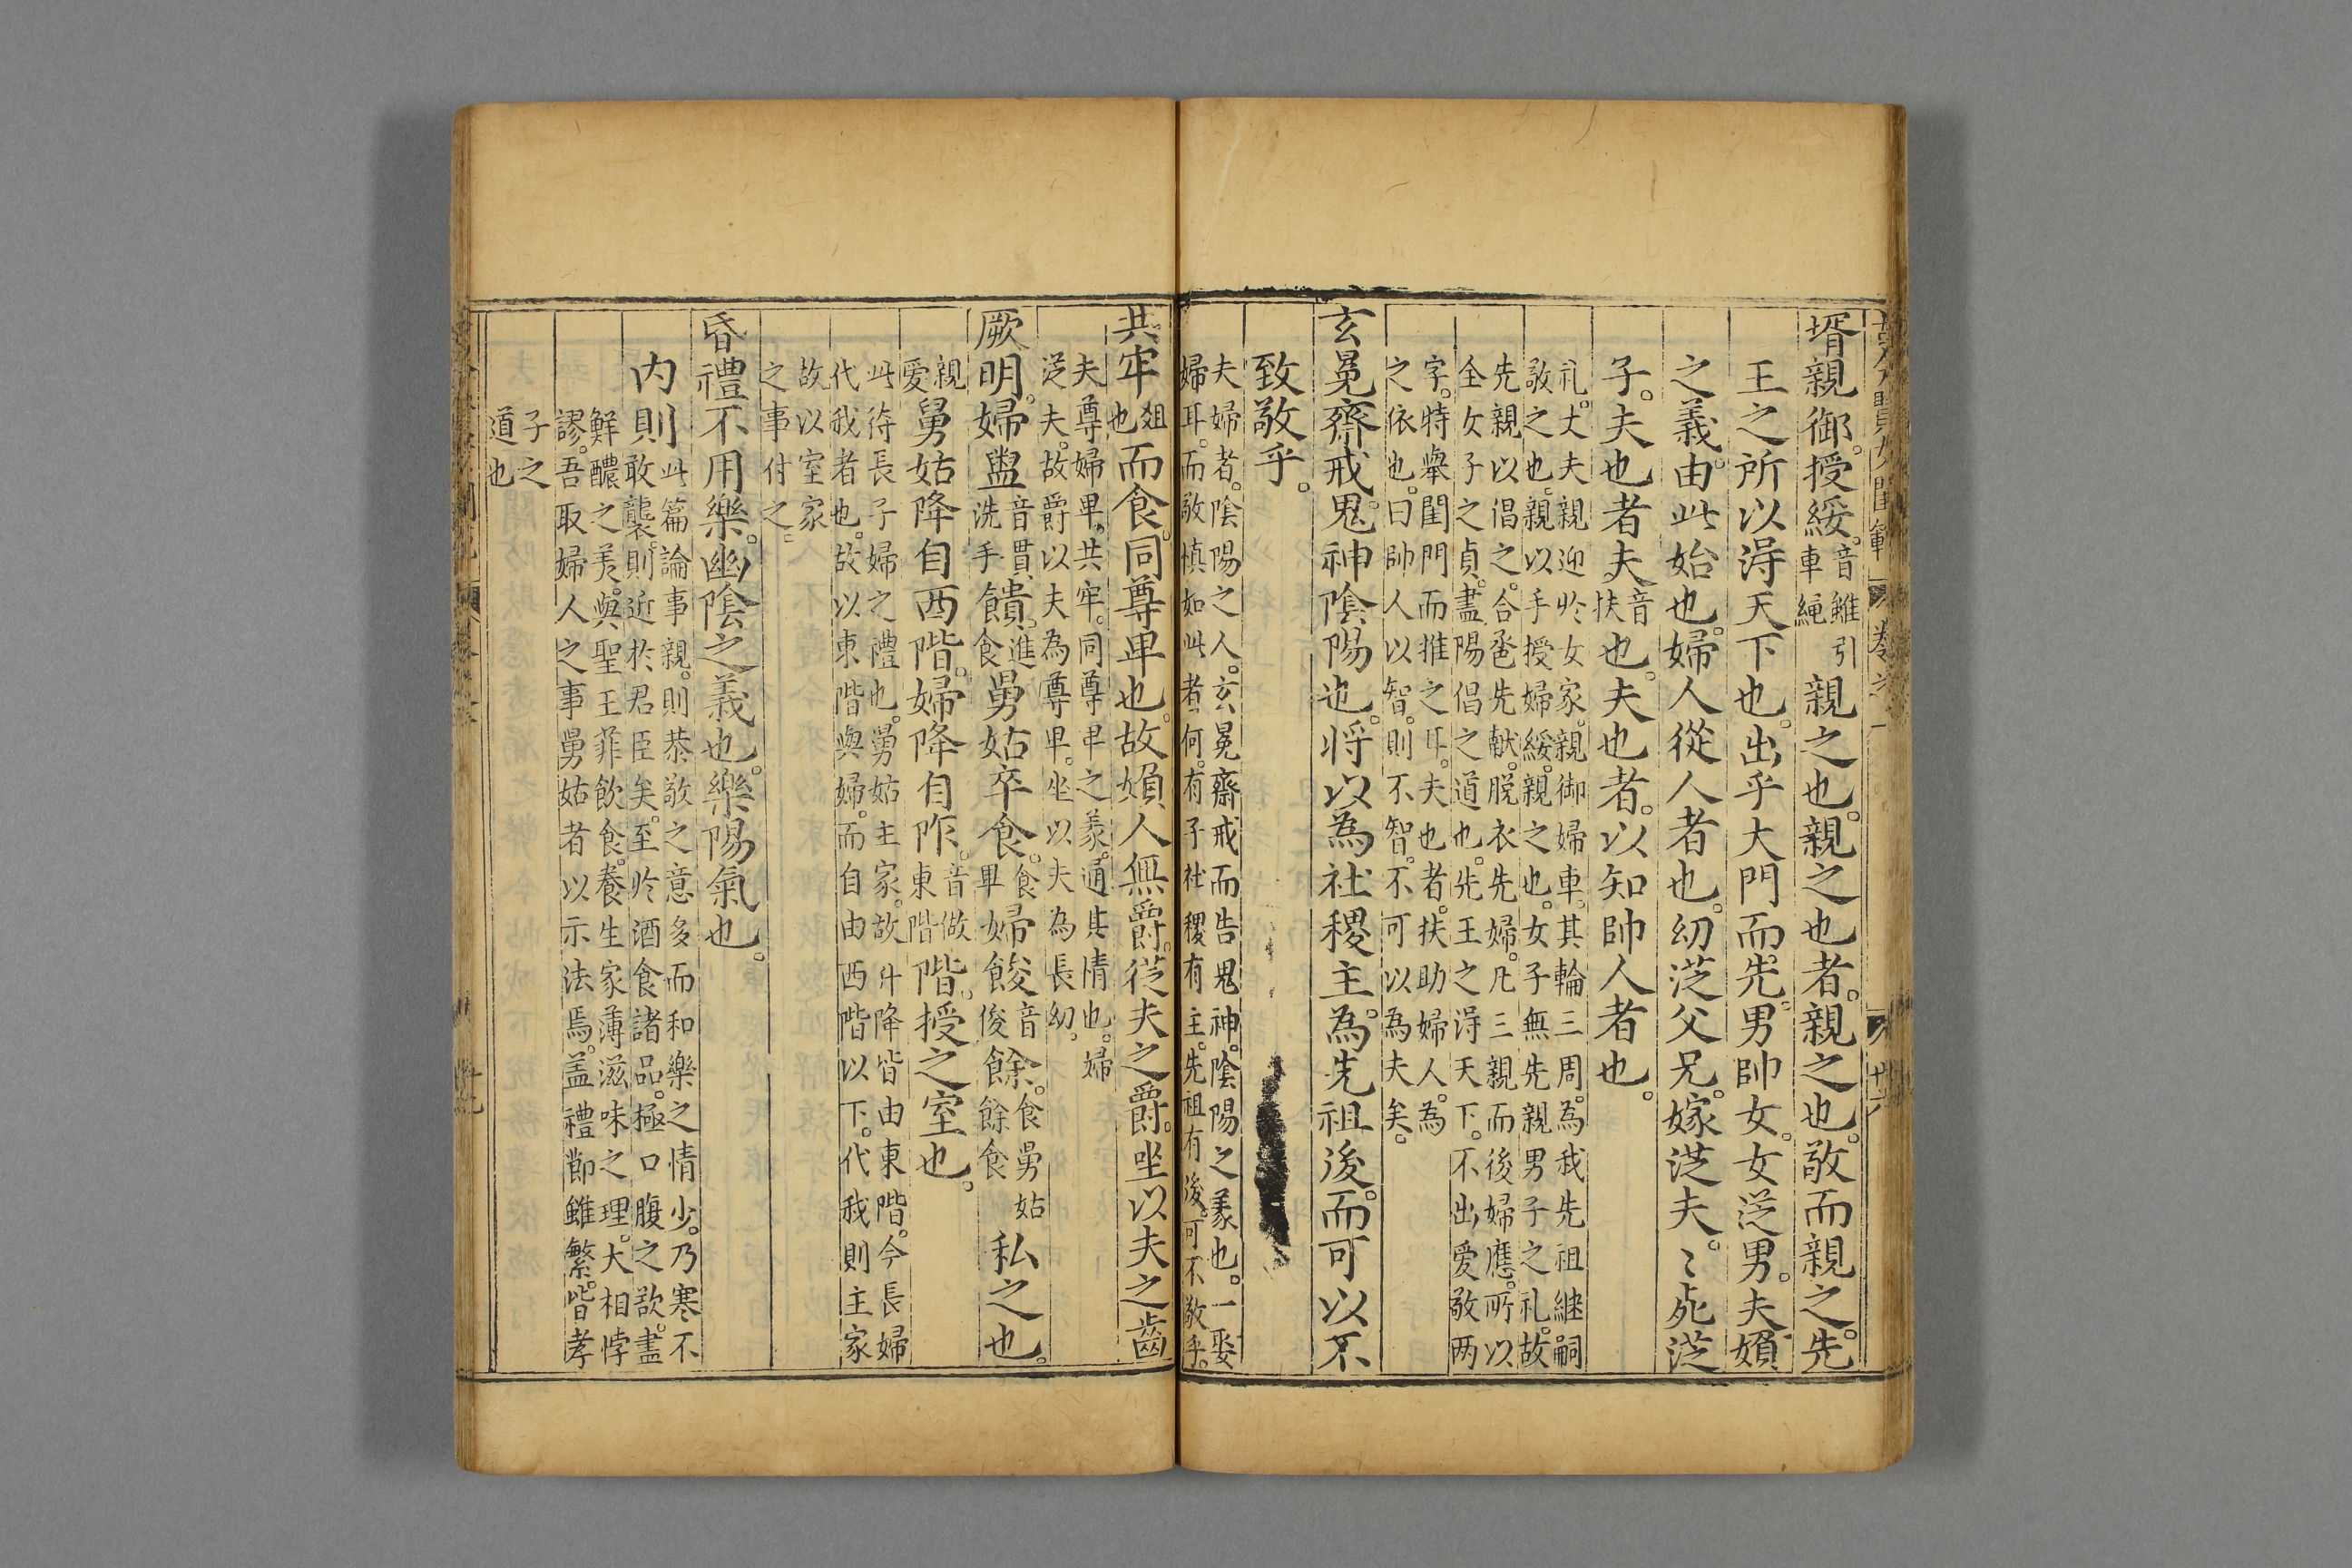 壻親御。授綏。音雖引車繩親之也。親之也者。親之也。敬而親之。先
王之所以得天下也。出乎大門而先。男帥女。女從男。夫婦
之義。由此始也。婦人從人者也。幼從父兄。嫁從夫。〻死從
子。夫也者夫音扶也。夫也者。以知帥人者也。
礼。丈夫親迎於女家。親御婦車。其輪三周。為我先祖継嗣
敬之也。親以手授婦綏。親之也。女子無先親男子之礼。故
先親以倡之。合巹先献。脱衣先婦。凡三親而後婦應。所以
全女子之貞。盡陽倡之道也。先王之得天下。不出愛敬两
字。特舉閨門而推之耳。夫也者。扶助婦人。為
之依也。曰帥人以智。則不智。不可以為夫矣。
玄冕齋戒。鬼神陰陽也。将以為社稷主。為先祖後。而可以不
致敬乎。
夫婦者。陰陽之人。玄冕齋戒而告鬼神。陰陽之義也。一娶
婦耳。而敬慎如此者何。有子社稷有主。先祖有後。可不敬乎。
共牢俎也而食。同尊卑也。故婦人無爵。從夫之爵。坐以夫之齒
夫尊婦卑。共牢。同尊卑之義。通其情也。婦
從夫。故爵以夫為尊卑。坐以夫為長幼。
厥明。婦盥音貫洗手饋。進食舅姑卒食。食畢婦餕音俊餘。食舅姑餘食私之也。
親愛舅姑降自西階。婦降自阼。音做東階階。授之室也。
此待長子婦之禮也。舅姑主家。故升降皆由東階。今長婦
代我者也。故以東階與婦。而自由西階以下。代我則主家
故以室家
之事付之。
昏禮不用樂。幽陰之義也。樂陽氣也。
内則此篇論事親。則恭敬之意多而和樂之情少。乃寒不
敢襲。則近於君臣矣。至於酒食諸品。極口腹之欲。盡
鮮醲之羙。與聖王菲飲食。養生家薄滋味之理。大相悖
謬。吾取婦人之事舅姑者以示法焉。盖禮節雖繁。皆孝
子之
道也